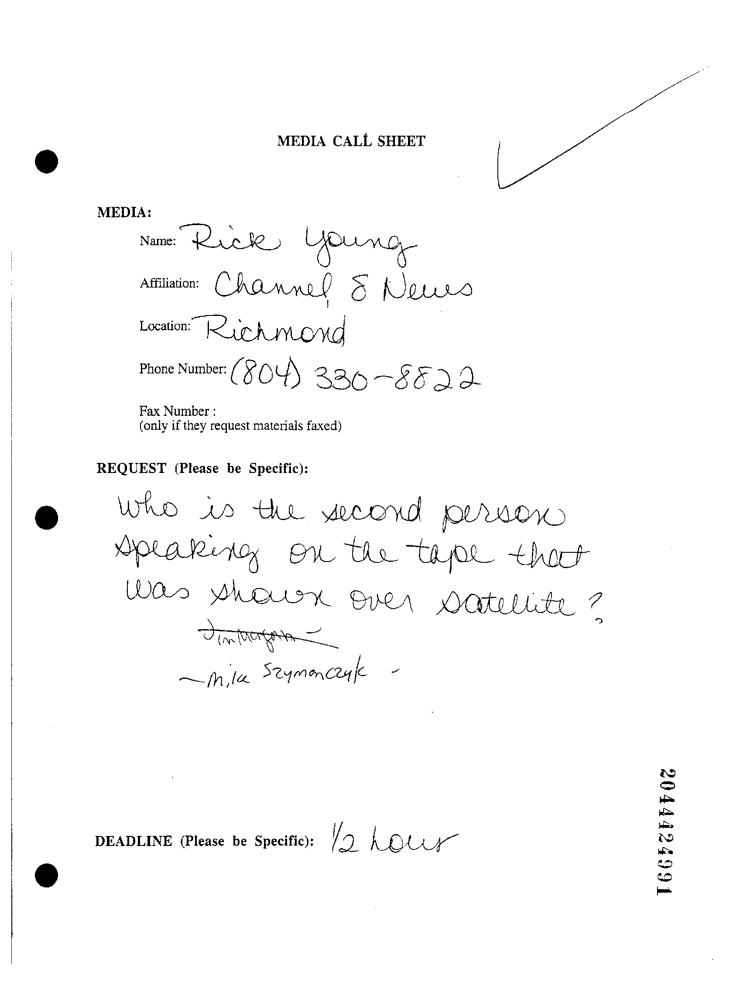 MEDIA CALL SHEET
MEDIA:
Name: Rick Young
Affiliation: Channel 8 News
Location: Richmond
Phone Number: (804) 330-8822
Fax Number :
(only if they request materials faxed)
REQUEST (Please be Specific):
Who is the second person
speaking on the tape that
was shown over satellite?
- Mike Szymanczyk -
DEADLINE (Please be Specific): 1/2 hour
2044424991